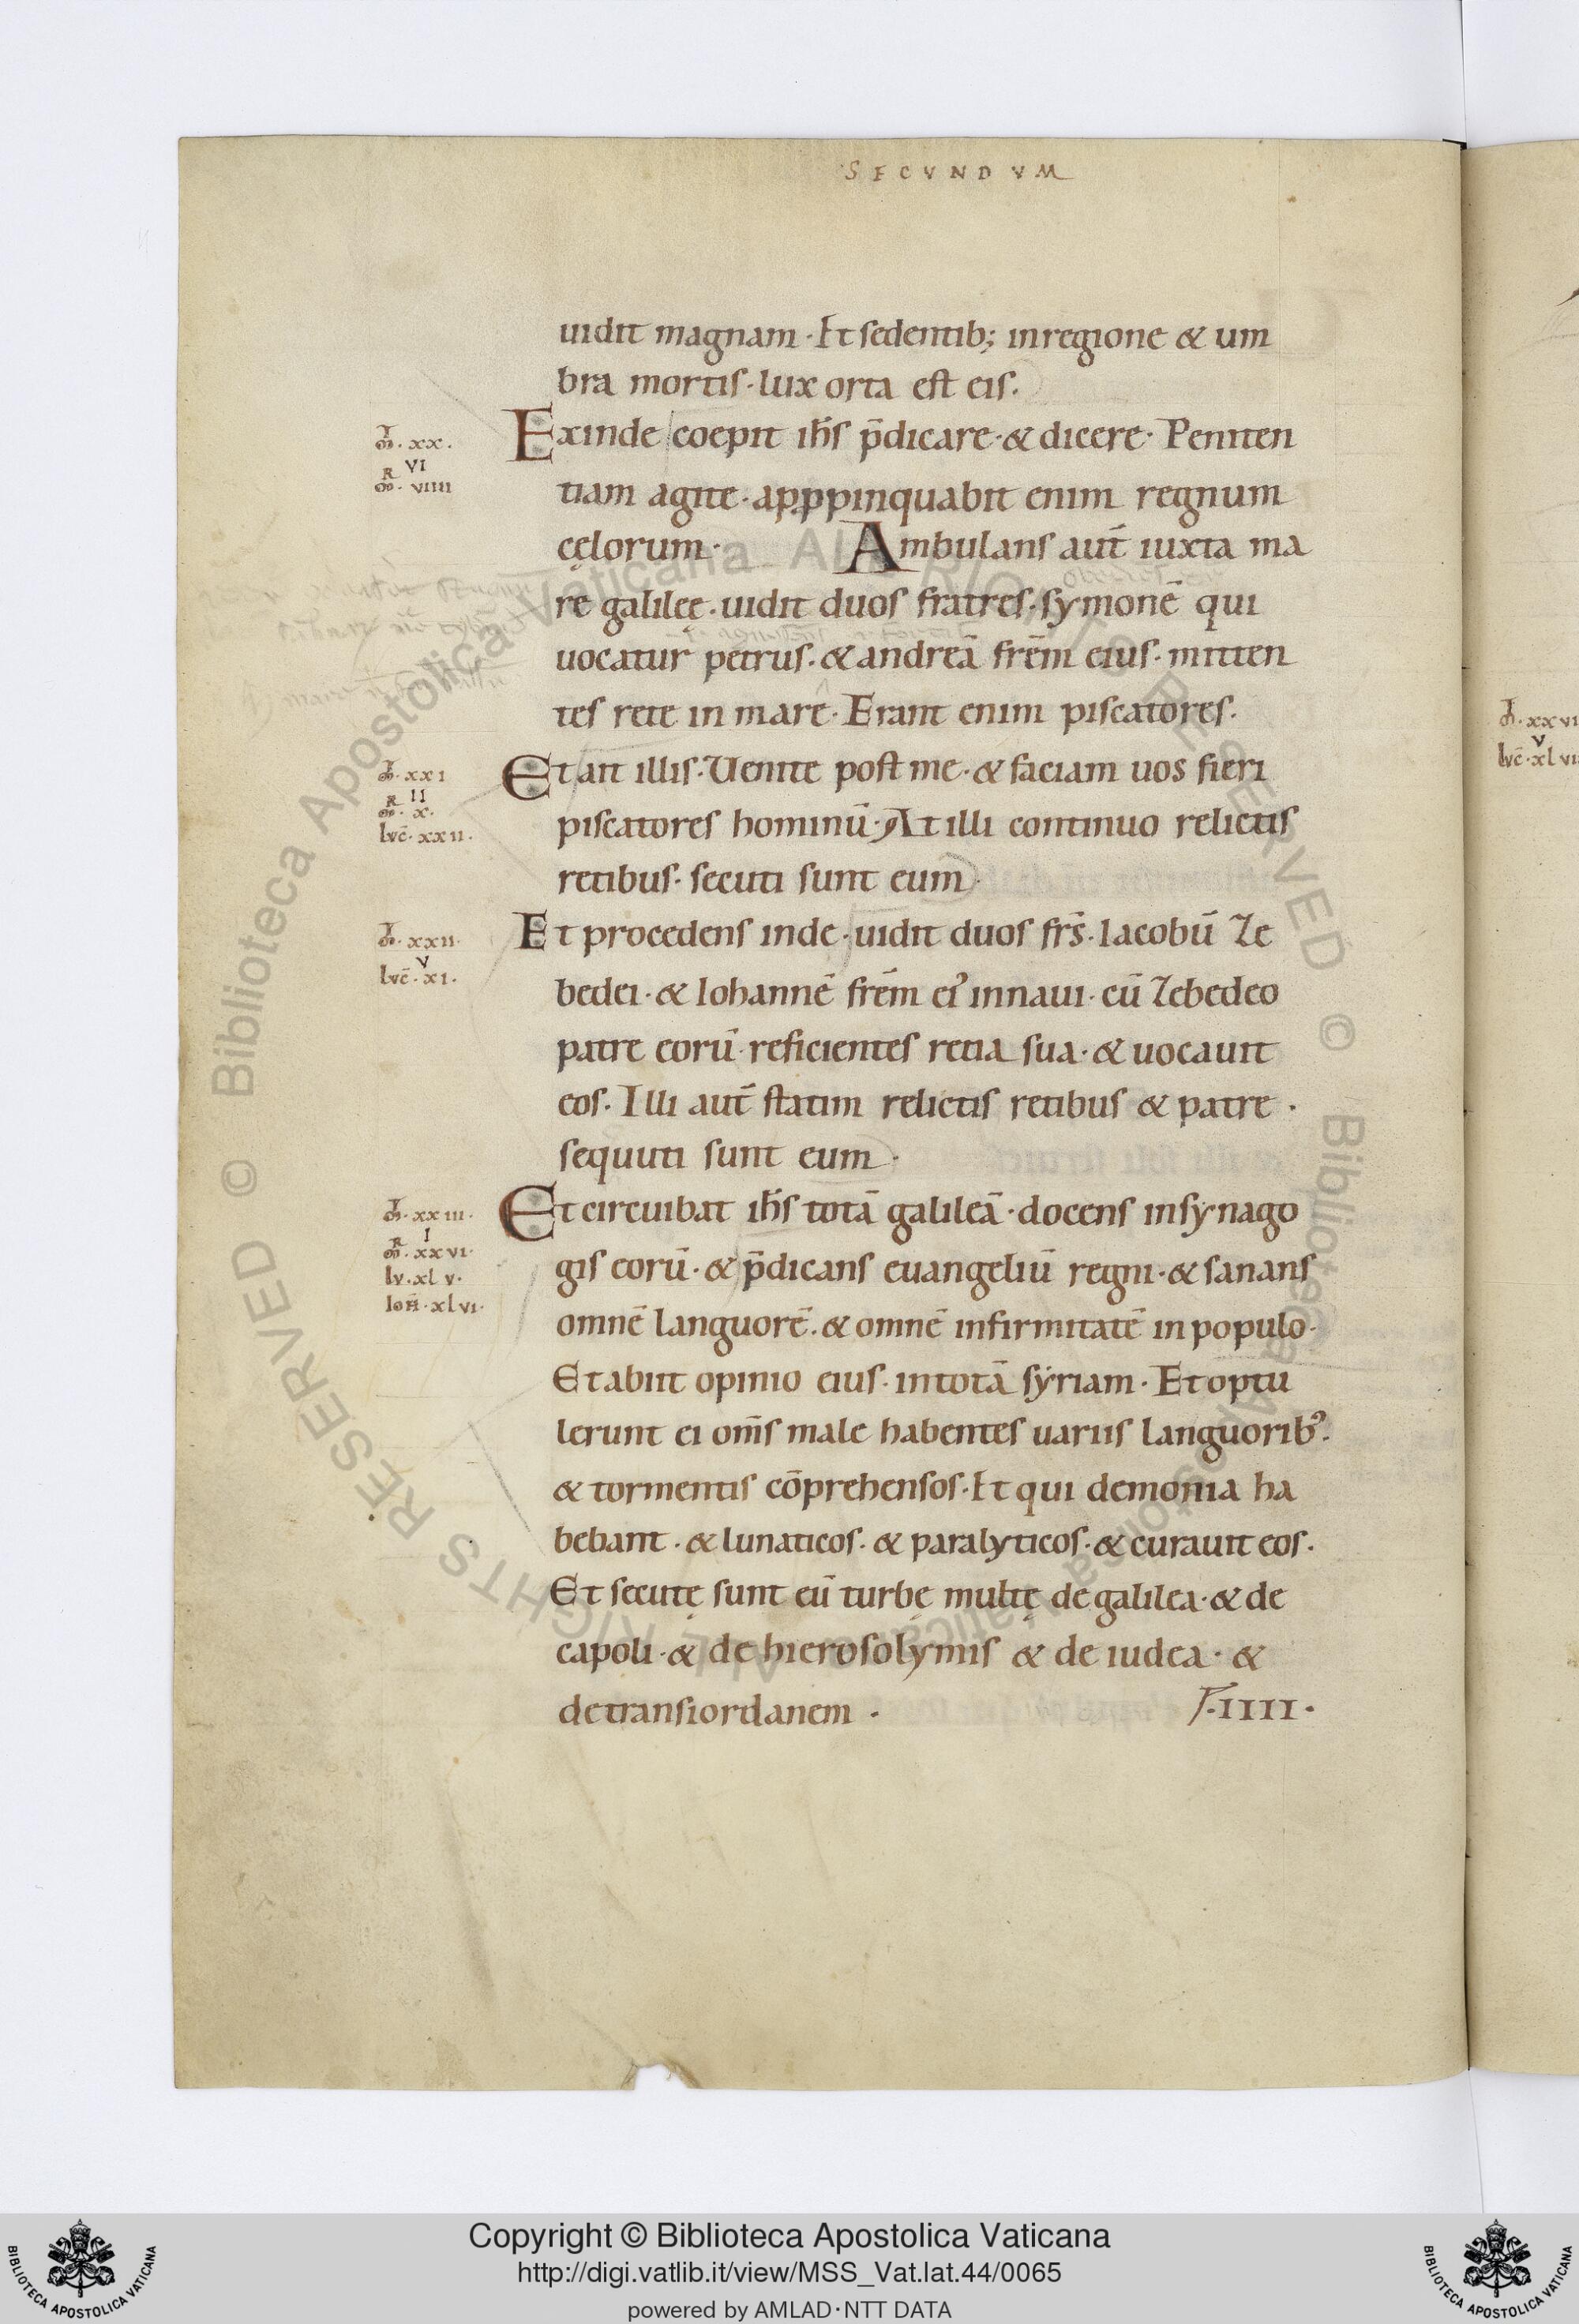 SECVNDVM
uidit magnam · Et sedentib; in regione & um
bra mortis · lux orta est eis.
Exinde coepit ihs̄ p̄dicare · & dicere · Peniten
tiam agite · appꝓpinquabit enim regnum
cęlorum · Ambulans aut̄ iuxta ma
re galileę · uidit duos fratres · symonē qui
uocatur petrus · & andreā frēm eius · mitten
tes rete in mare · Erant enim piscatores.
Et ait illis · Uenite post me · & faciam uos fieri
piscatores hominū · At illi continuo relictis
retibus · secuti sunt eum ·
Et procedens inde · uidit duos frs̄ · Iacobū Ze
bedei · & Iohannē frēm ei' in naui · cū Zebedeo
patre eorū reficientes retia sua · & uocauit
eos · Illi aut̄ statim relictis retibus & patre ·
sequuti sunt eum ·
Et circuibat ihs̄ totā galileā · docens in synago
gis eorū · & p̄dicans euangeliū regni · & sanans
omnē languorē · & omnē infirmitatē in populo ·
Et abiit opinio eius · in totā syriam · Et optu
lerunt ei om̄s male habentes uariis languorib' ·
& tormentis cōprehensos · Et qui demonia ha
bebant · & lunaticos · & paralyticos · & curauit eos ·
Et secutę sunt eū turbę multę de galilea · & de
capoli · & de hierosolymis & de iudea · &
de transiordanem ·
F · IIII ·
xx ·
VI
VIIII
xxI
II
x ·
Lvc̄ · xxII ·
xxII ·
V
Lvc̄ · xI ·
xxIII ·
I
xxVI ·
Lv · xLV ·
Ioh̄ · xLVI ·
xxVI
V
Lvc̄ · xLVI
© Biblioteca Apostolica Vaticana ALL RIGHTS RESERVED © Biblioteca Apostolica Vaticana ALL RIGHTS RESERVED
Copyright © Biblioteca Apostolica Vaticana
http://digi.vatlib.it/view/MSS_Vat.lat.44/0065
powered by AMLAD·NTT DATA
BIBLIOTECA APOSTOLICA VATICANA
BIBLIOTECA APOSTOLICA VATICANA